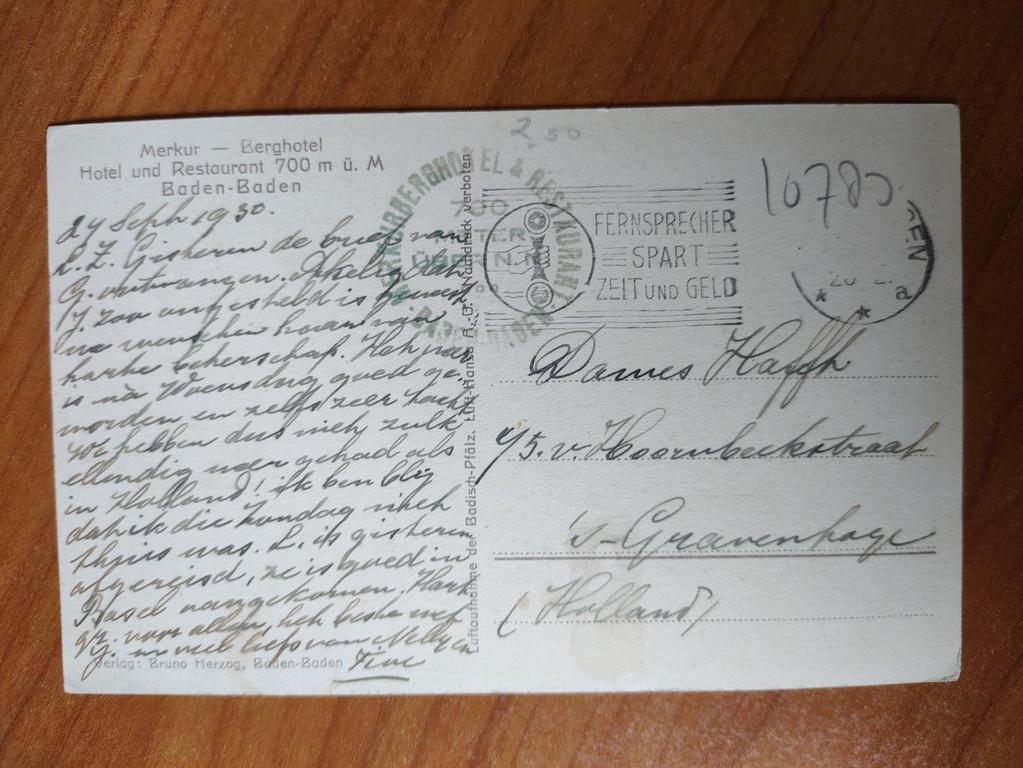 Merkur — Berghotel
Hotel und Restaurant 700 m ü. M
Baden-Baden
24 Sept 1930.
L. Z. Gisteren de brief van
G. ontvangen.
Ij. zoo is
we menschen
harte beterschap. Het weer
is na Woensdag goed ge
worden en zelfs zeer
We hebben dus niet zulk
ellendig weer gehad als
in Holland! ik ben blij
dat ik die Zondag niet
thuis was. L. is gisteren
afgereisd, ze is goed in
Basel aangekomen. Hart.
gr. voor allen, het beste met
en veel liefs van
Tine
Verlag: Bruno Herzog, Baden-Baden
Luftaufnahme der Badisch-Pfälz. Luft-Hansa A.-G. Nachdruck verboten
2 50
MERKURBERGHOTEL & RESTAURANT
700
METER
ÜBER N.N.
BADEN-BADEN
FERNSPRECHER
SPART
ZEIT UND GELD
10785
EN
a
Dames Haffh
45. v. Hoornbeekstraat
's-Gravenhage
(Holland)